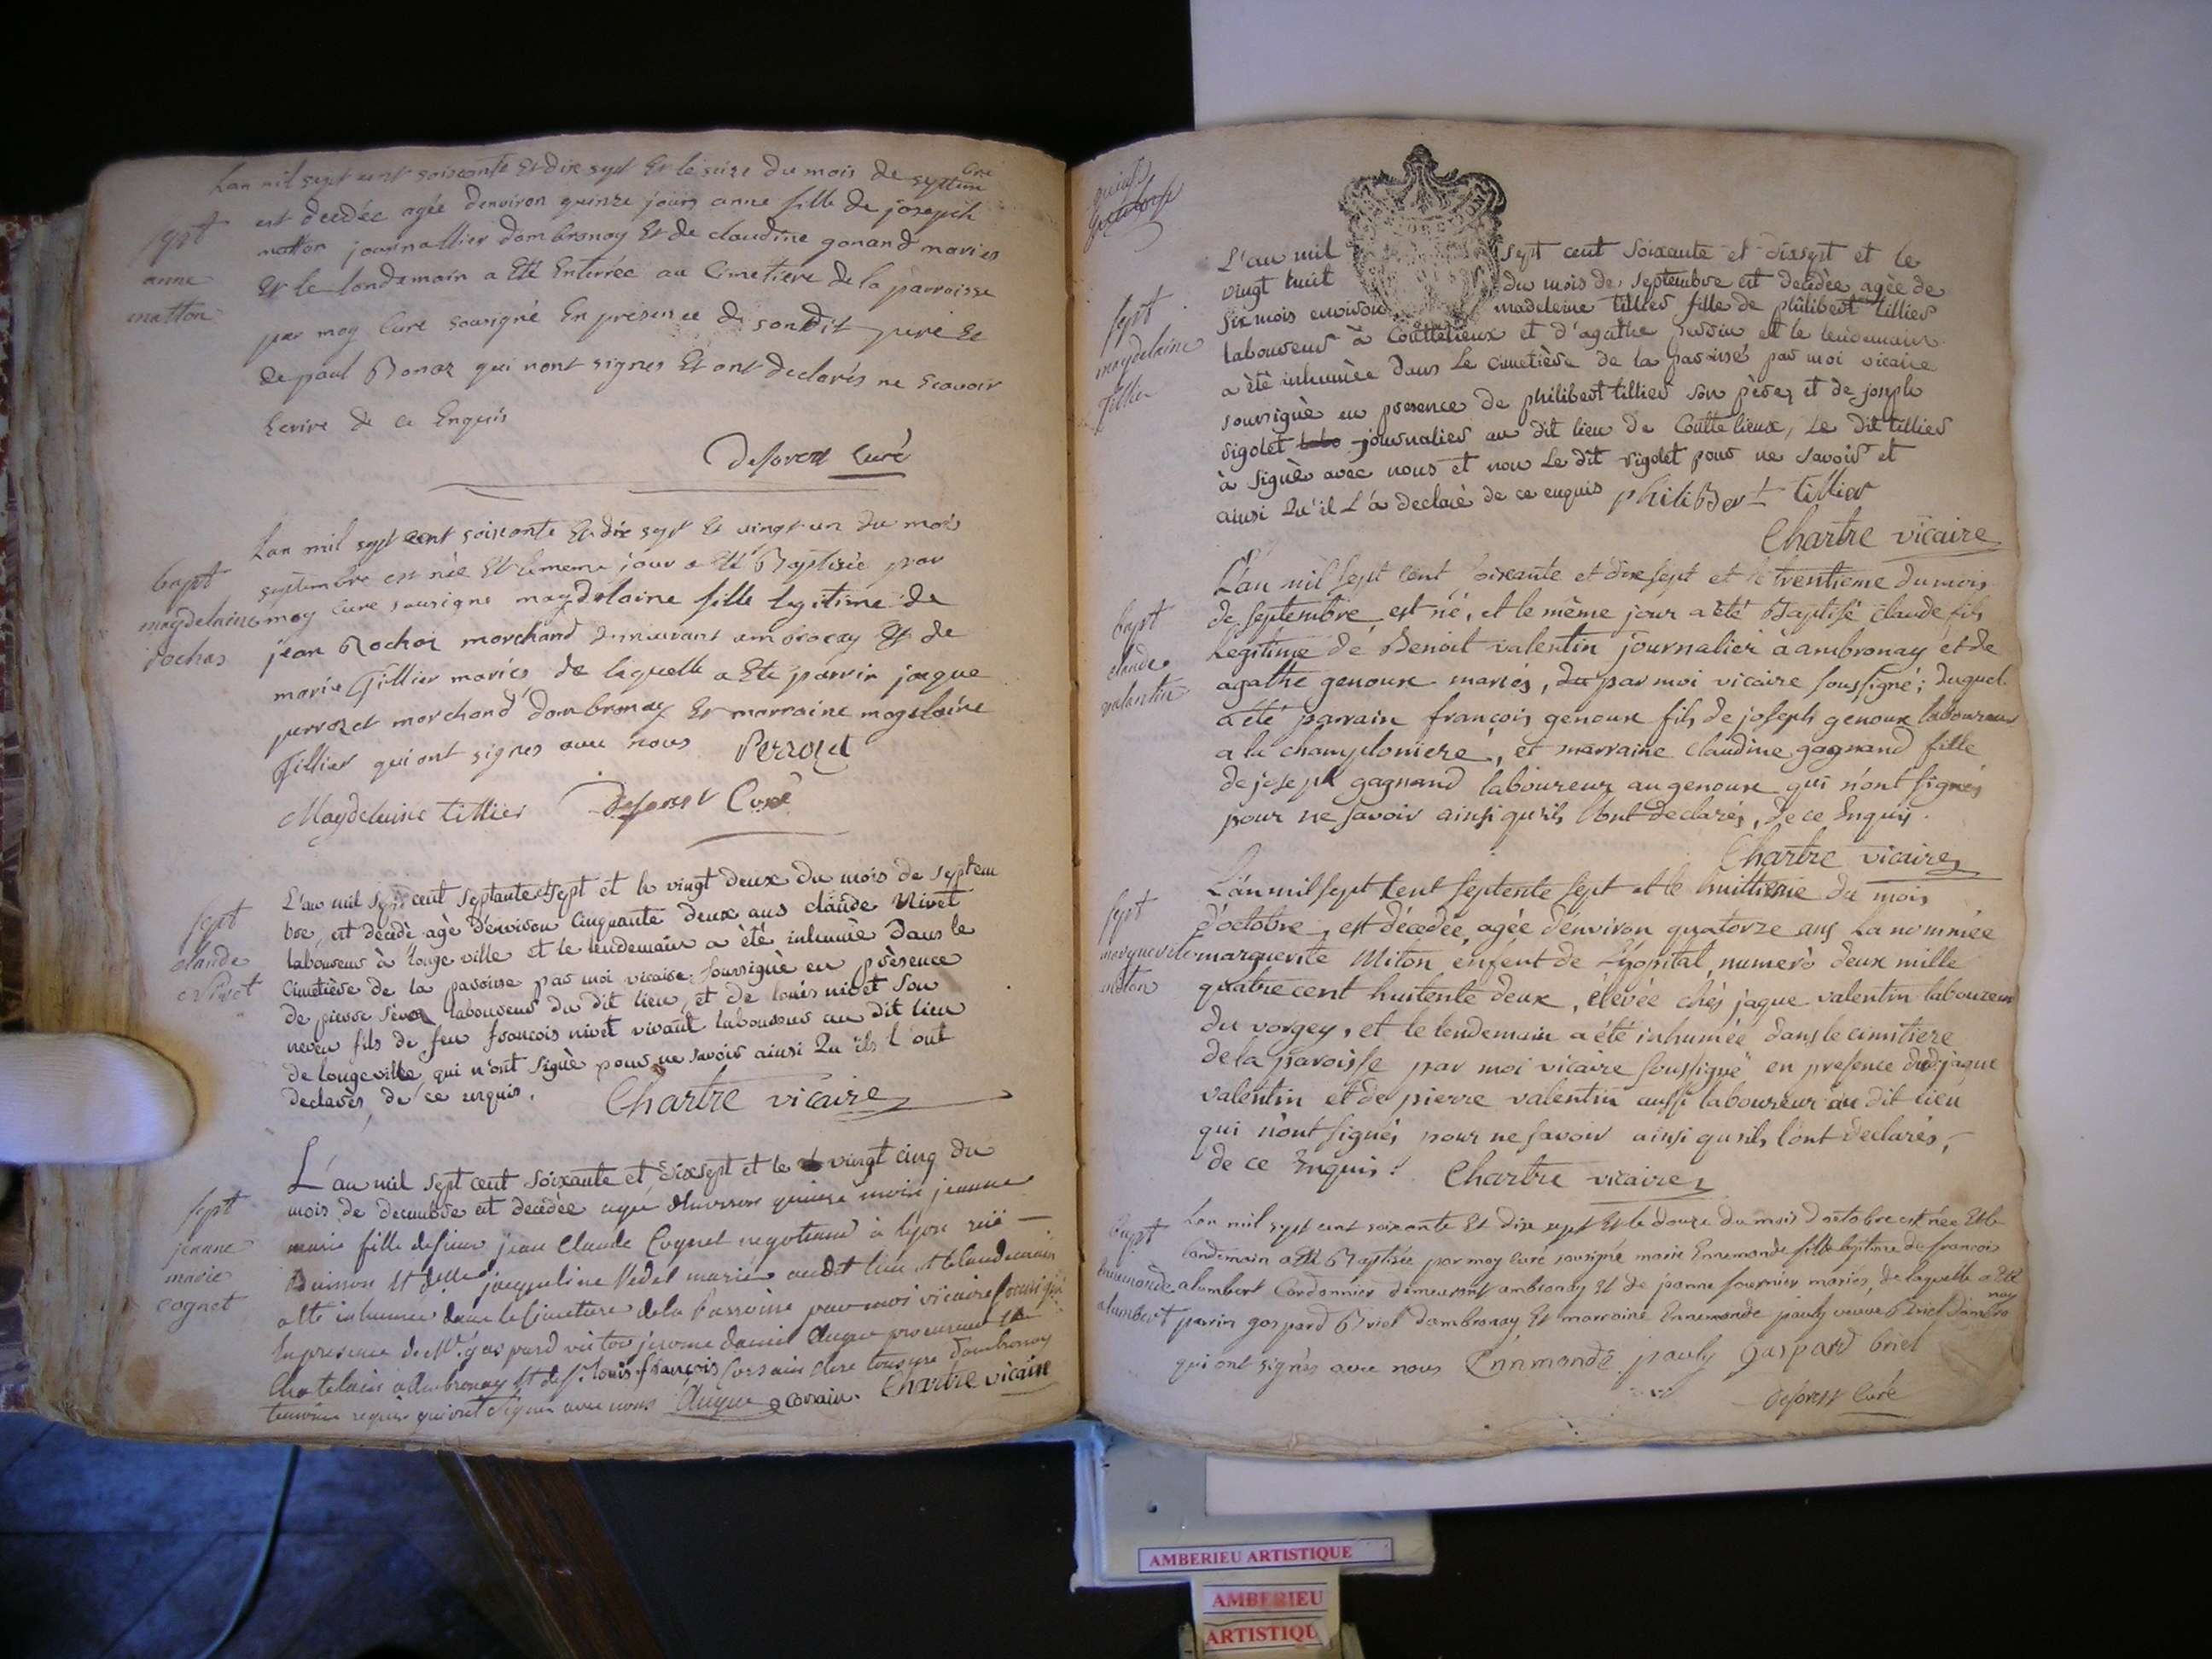 Lan mil sept cent soixante Et dix sept Et le seize du mois de septem bre
est decedée agée denviron quinze jours anne fille de joseph
sept
anne
matton
matton journallier dambronay Et de claudine gonand maries
Et le landemain a Eté Enterrée au Cimetiere de la parroisse
par moy Curé sousigné En presence de sondit pere Et
de paul Bonaz qui nont signes Et ont declarés ne scavoir
Ecrire de ce Enquis
Deforest Curé
Lan mil sept cent soixante Et dix sept Et vingt un du mois
bapt
magdelaine
rochas
septembre est née Et lememe jour a Eté Baptisée par
moy cure sousigne magdelaine fille legitime de
jean Rochas marchand ambronay Et de
marie Tillier mariés de laquelle a Eté parrin jaque
perrozet marchand dambronay Et marraine magdelaine
Tillier qui ont signes avec nous Perrozet
Magdelaine tillier Deforest Curé
L'an mil sept cent septante et sept et le vingt deux du mois de septem
sept
claude
nivet
bre, est décédé agé d'environ cinquante deux ans claude Nivet
laboureur à longe ville et le lendemain a été inhumé dans le
cimetière de la paroisse par moi vicaire soussigné en présence
de pierre laboureur du dit lieu, et de louis nivet son
neveu fils de feu françois nivet vivant laboureur au dit lieu
de longeville, qui n'ont signé pour ne savoir ainsi Qu'ils l'ont
declarés, de ce enquis. Chartre vicaire
L'an mil sept cent soixante et dixsept et le vingt cinq du
sept
jeanne
marie
cognet
mois de decembre est decédée agée denviron quinze mois jeanne
marie fille de sieur jean Claude Cognet negotiant à lyon ruë
Buisson et delle jacqueline Vedel mariés audit lieu et le landemain
a ete inhumee dans le Cimetiere de la Parroisse par moi vicaire soussigné
En presence de Mr. gaspard victor jerome daniel Auger procureur Et
Chatelain a Ambronay Et de sr. louis françois Corsain clerc tonsure dambronay
temoins requis qui ont signes avec nous Auger Corsain. Chartre vicaire
L'an mil sept cent soixante et dixsept et le
sept
magdelaine
tillier
vingt huit du mois de septembre est decédée agée de
six mois environ madeleine tillier fille de philibert tillier
laboureur à Couttelieux et d'agathe et le lendemain
a été inhumée dans le cimetière de la paroisse par moi vicaire
soussigné en presence de philibert tillier son père, et de joseph
rigolet journalier au dit lieu de Couttelieux, le dit tillier
à signé avec nous et non le dit rigolet pour ne savoir et
ainsi Qu'il L'a declaré de ce enquis philibert tillier
Chartre vicaire
L'an mil sept cent soixante et dix sept et le trentieme du mois
bapt
claude
valentin
de septembre est né, et le même jour a été Baptisé claude fils
Legitime de Benoit valentin journalier à ambronay et de
agathe genoux mariés, par moi vicaire soussigné; duquel
a été parrain françois genoux fils de joseph genoux laboureur
a la champloniere, et marraine claudine gagnand fille
de joseph gagnand laboureur au genoux qui n'ont signés
pour ne savoir ainsi qu'ils l'ont declarés, de ce Enquis.
Chartre vicaire
L'an mil sept cent septente sept et le huittieme du mois
sept
marguerite
miton
d'octobre, est décedée, agée d'environ quatorze ans La nommée
marguerite Miton enfent de L'hopital, numerò deux mille
quatre cent huitente deux, élevée chés jaque valentin laboureur
du vorgey, et le lendemain a été inhumée dans le cimitiere
de la paroisse par moi vicaire soussigné en presence dud. jaque
valentin et de pierre valentin aussi laboureur au dit lieu
qui n'ont signés pour ne savoir ainsi qu'ils l'ont declarés,
de ce Enquis. Chartre vicaire
Lan mil sept cent soixante Et dix sept Et le douze du mois d'octobre est née Et le
bapt
Ennemonde
alumbert
landemain a été Baptisée par moy Curé sousigné marie Ennemonde fille legitime de francois
alumbert Cordonnier demeurant ambronay Et de jeanne fournier mariés, de laquelle a Eté
parrin gaspard Briel dambronay Et marraine Ennemonde pauly veuve Briel dambro nay
qui ont signés avec nous Ennmonde pauly gaspard briel
deforest Curé
AMBERIEU ARTISTIQUE
AMBERIEU
ARTISTIQU